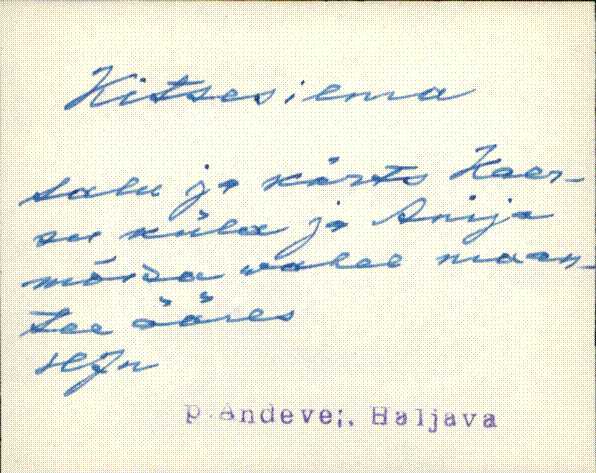 Kitsesiema
salu ja kõrts Kaer-
su küla ja Anija
mõisa vahel maan-
tee ääres
P. Andevei, Haljava